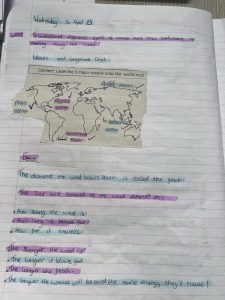 Wednesday 30 April 25
different types of waves and how
Waves and longshore drift
Connect: Label the 5 major oceans onto the world map
Arctic ocean
Pacific ocean
Atlantic ocean
Indian ocean
Southern ocean
Fetch
The distance the wind blows over is called the fetch.
The size and strength of the wave depends on:
How strong the wind is
How long it blows for
How far it travels
The stronger the wind is
The longer it blows for
The longer the fetch
The longer the waves will be and the more energy they'll have!!